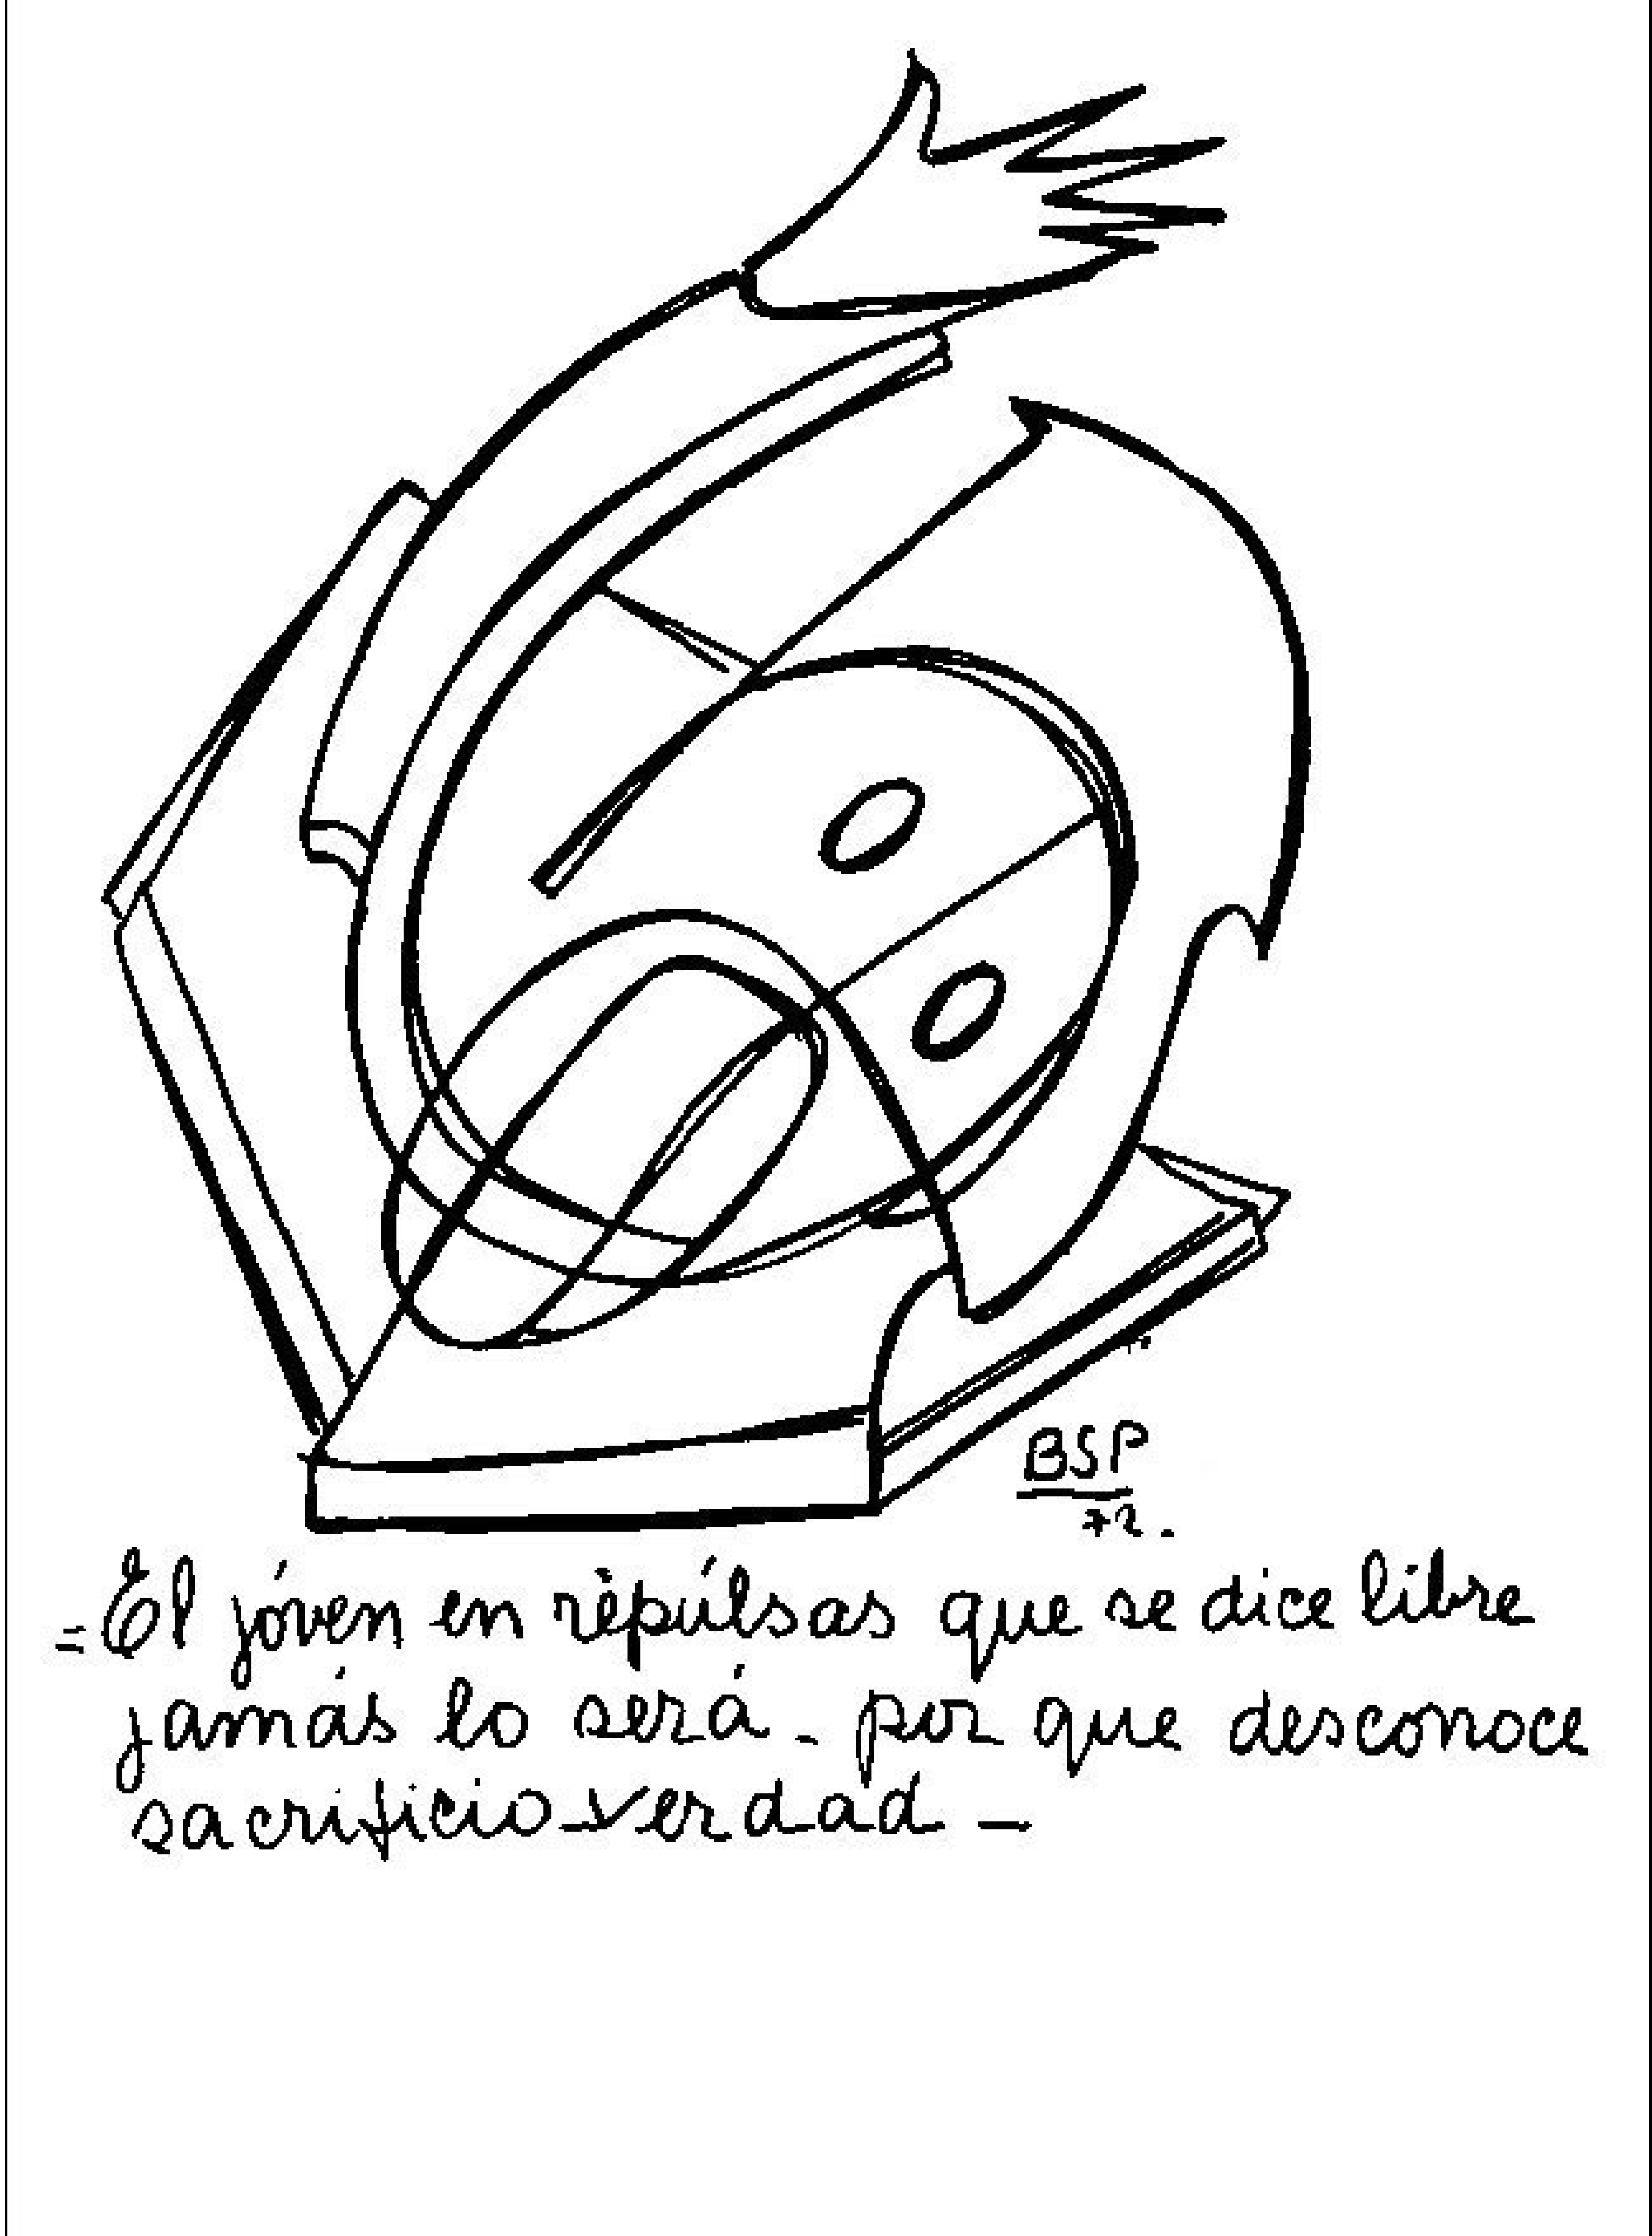 BSP
72.
= El jóven en rèpúlsas que se dice libre
jamás lo será - por que desconoce
sacrificio - verdad -